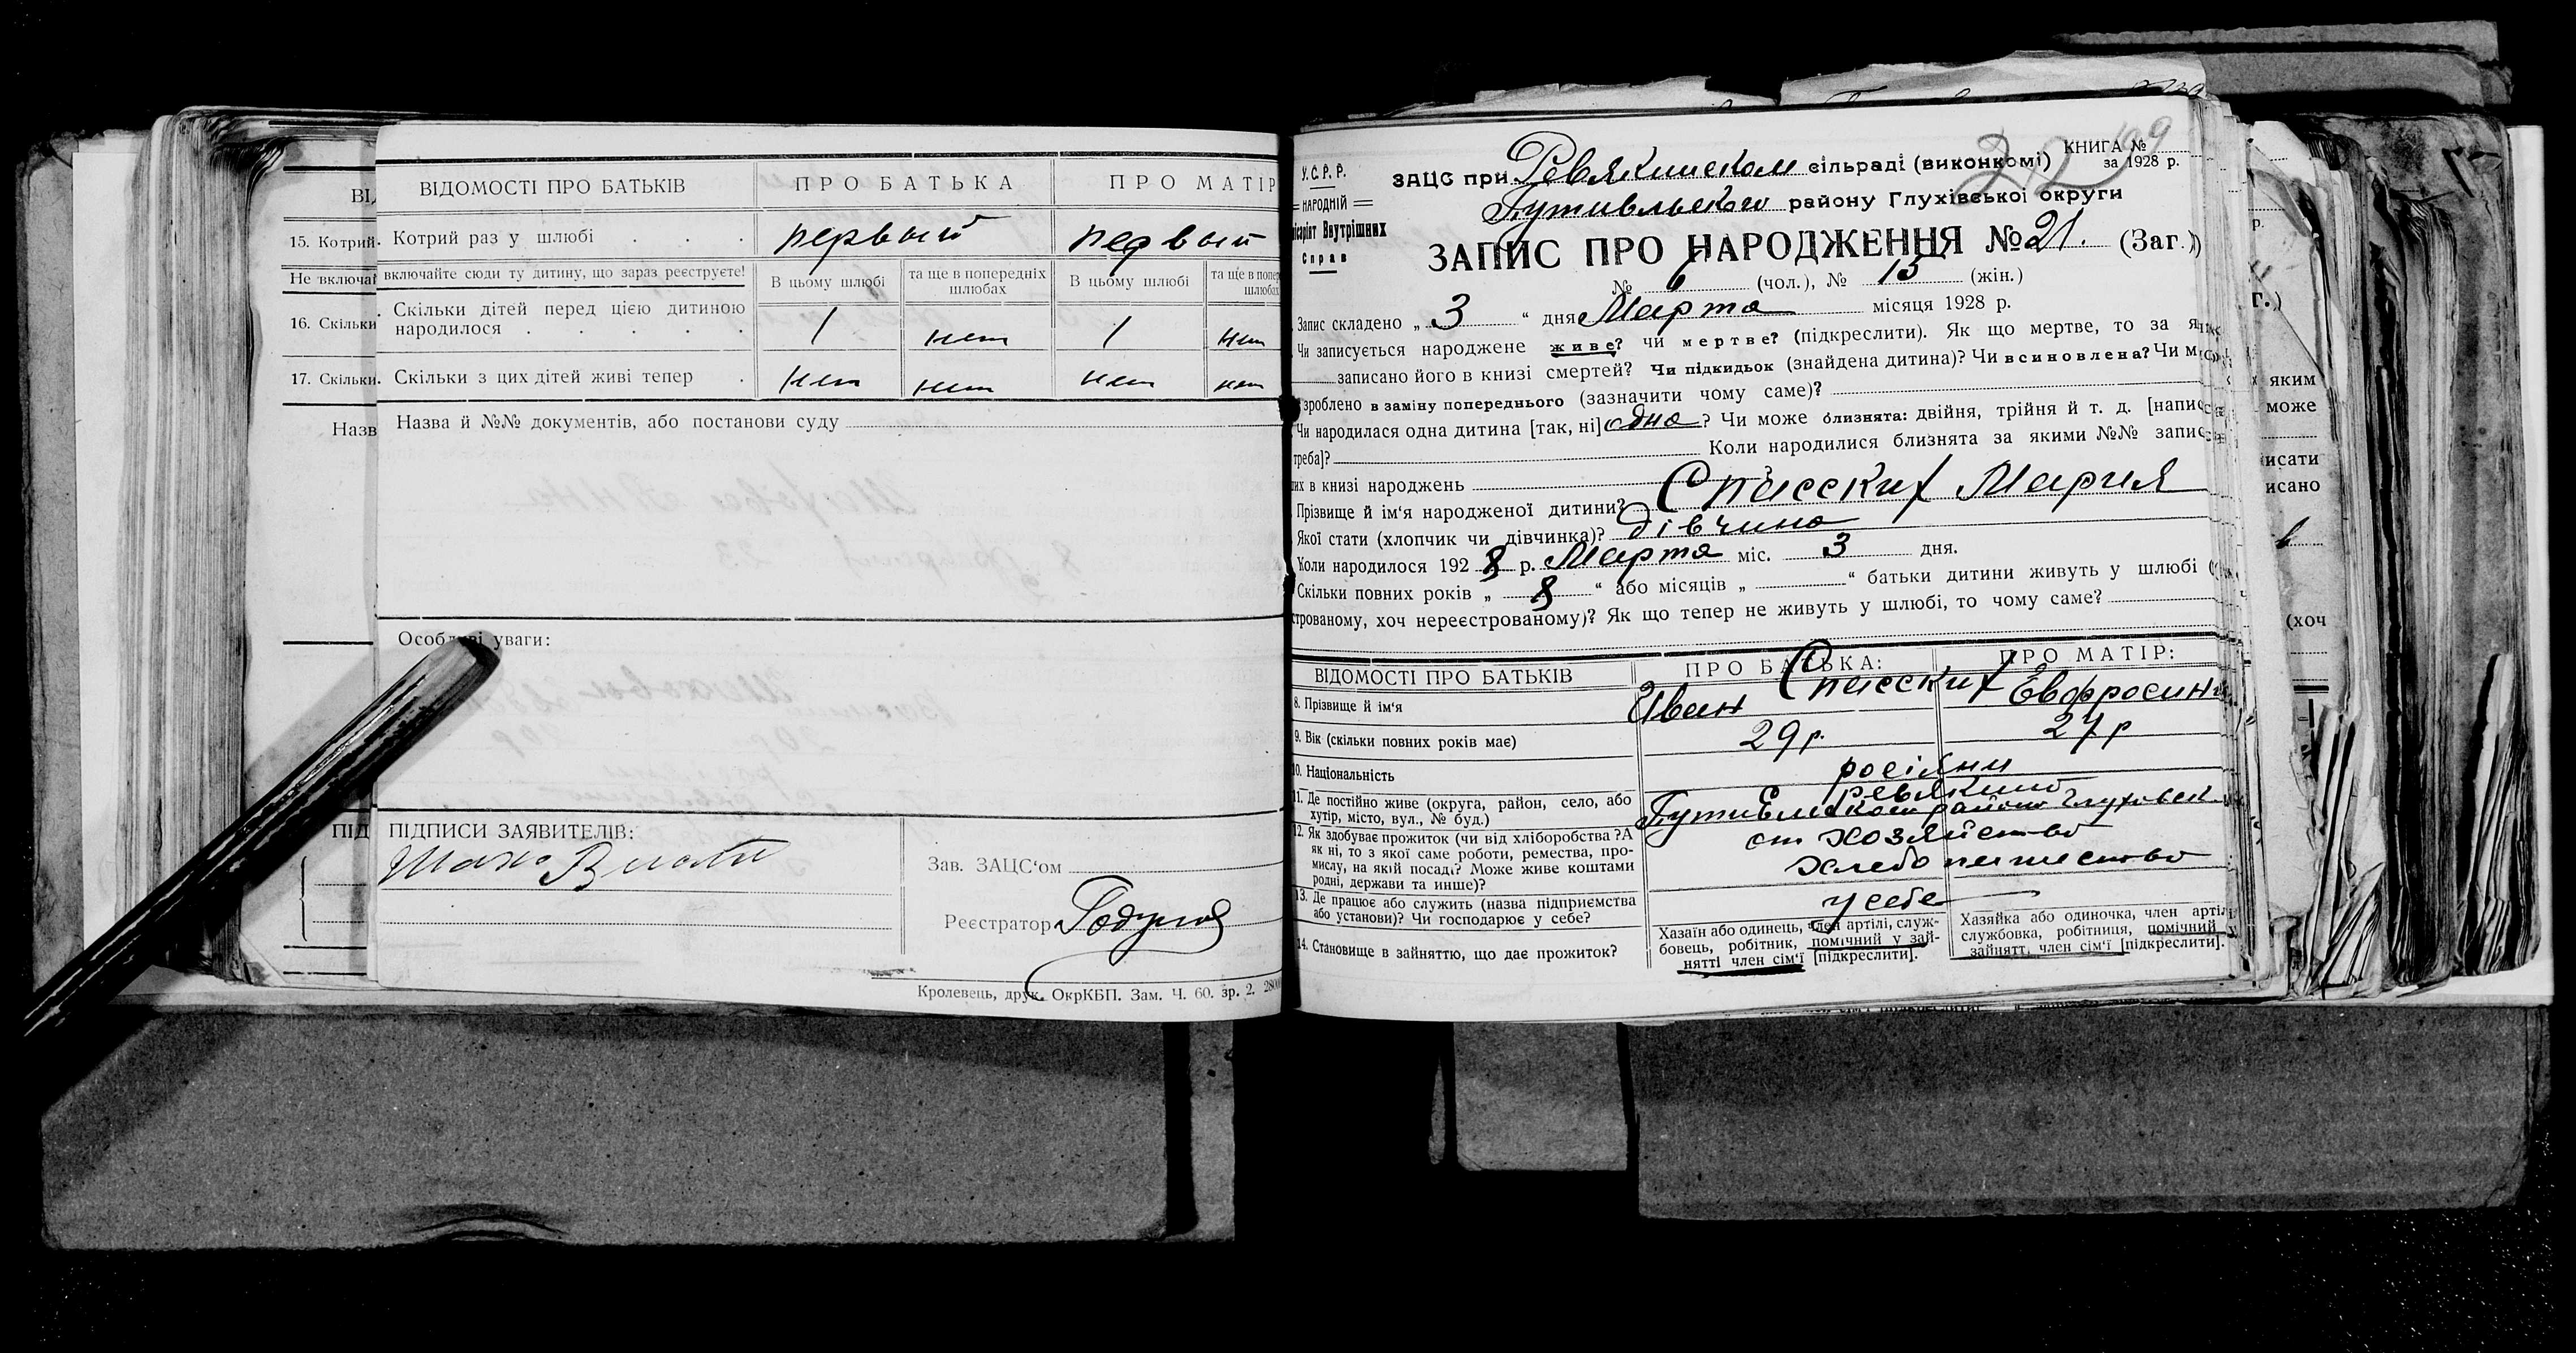 ВІДОМОСТІ ПРО БАТЬКІВ ПРО БАТЬКА ПРО МАТІР
15. Котрий Котрий раз у шлюбі первый первый
Не включай включайте сюди ту дитину, що зараз реєструєте! В цьому шлюбі та ще в попередніх шлюбах В цьому шлюбі та ще в попер шлюбах
16. Скільки Скільки дітей перед цією дитиною
народилося 1 нет 1 нет
17. Скільки Скільки з цих дітей живі тепер нет нет нет нет
Назв Назва й №№ документів, або постанови суду
Особливі уваги:
ПІД ПІДПИСИ ЗАЯВИТЕЛІВ:
Зав. ЗАЦС'ом
Реєстратор
Кролевець, друк. ОкрКБП. Зам. Ч. 60. зр. 2. 2800
У.С.Р.Р.
НАРОДНІЙ
місаріят Внутрішніх
Справ
КНИГА № 99
за 1928 р.
22
ЗАЦС при Ревякинском сільраді (виконкомі)
Путивльского району Глухівської округи
ЗАПИС ПРО НАРОДЖЕННЯ № 21. (Заг.)
№ 6 (чол.), № 15 (жін.)
Запис складено „ 3 “ дня Марта місяця 1928 р.
Чи записується народжене живе? чи мертве? (підкреслити). Як що мертве, то за я
записано його в книзі смертей? Чи підкидьок (знайдена дитина)? Чи всиновлена? Чи м
зроблено в заміну попереднього (зазначити чому саме)?
Чи народилася одна дитина [так, ні] одна? Чи може близнята: двійня, трійня й т. д. [напис
треба]? Коли народилися близнята за якими №№ запис
них в книзі народжень
Прізвище й ім'я народженої дитини? Спасских Мария
Якої стати (хлопчик чи дівчинка)? дівчина
Коли народилося 1928 р. Марта міс. 3 дня.
Скільки повних років „ 8 “ або місяців „ “ батьки дитини живуть у шлюбі (
строваному, хоч нереєстрованому)? Як що тепер не живуть у шлюбі, то чому саме?
ВІДОМОСТІ ПРО БАТЬКІВ ПРО БАТЬКА: ПРО МАТІР:
8. Прізвище й ім'я Спасских Иван Евфросин
9. Вік (скільки повних років має) 29 р. 27 р
10. Національність росіяни
11. Де постійно живе (округа, район, село, або
хутір, місто, вул., № буд.) С Ревякино
Путивльском районе Глуховск
12. Як здобуває прожиток (чи від хліборобства? А
як ні, то з якої саме роботи, ремества, про-
мислу, на якій посаді? Може живе коштами
родні, держави та инше)? от хозяйство
хлебопашество
13. Де працює або служить (назва підприємства
або установи)? Чи господарює у себе? у себе
14. Становище в зайняттю, що дає прожиток?
Хазаїн або одинець, член артілі, служ-
бовець, робітник, помічний у зай-
нятті член сім'ї [підкреслити].
Хазяйка або одиночка, член артіл
службовка, робітниця, помічний у
зайнятт. член сім'ї [підкреслити].
р.
г.)
яким
може
исати
исано
(хоч